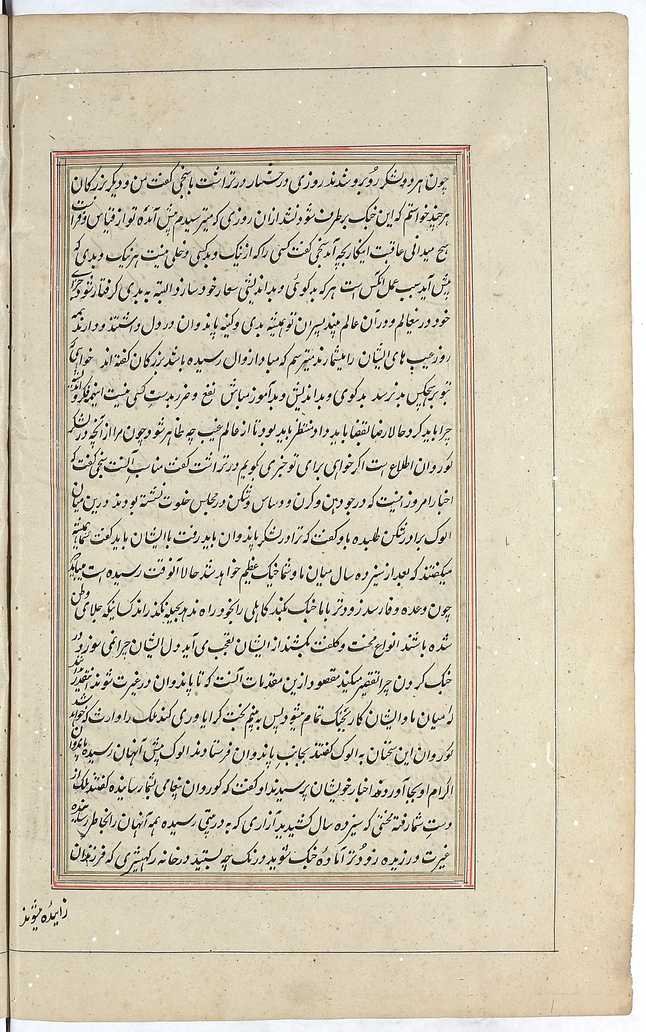 چون هر دو لشکر روبرو شدند روزی در جنهار درتراشت با سنجی گفت من و دیگر بزرگان
هر چند خواستم که این جنگ برطرف شود نشد از آن روزی که میترسیدم پیش آمده تو از قیاس و فراست
هیچ میدانی عاقبت اینکار بچه آید سنجی گفت کسی را که از نیک و بد کسی دخلی نیست هر نیک و بدی که
پیش آید سبب عمل آنکس است هر که بدگوئی و بداندیشی شعار خود سازد البته به بدی گرفتار شود جزای
خود در نعالم و در آن عالم بیند پسران تو همیشه بدی و کینه پاندوان در دل داشتند و دارند همه
روز عیب های ایشان را میشمارند میترسم که مبادا زوال رسیده باشد بزرگان گفته اند خواهی که
بتو بر هیچکس بد نرسد بدگوی و بداندیش و بدآموز مباش نفع و ضرر بدست کسی نیست اینهمه فکر و اندیشه
چرا باید کرد حالا رضا بقضا باید داد منتظر باید بود تا از عالم غیب چه ظاهر شود چون مرا از آنچه در لشکر
کوروان اطلاع است اگر خواهی برای تو خبری گویم درتراشت گفت مناسب آنست سنجی گفت که
اخبار امروز اینست که درجودهن و کرن و دوساس و شکن در مجلس خلوت نشسته بودند درین میان
الوک برادر شکن طلبیده باو گفت که ترا در لشکر پاندوان باید رفت با ایشان باید گفت شما همیشه
میگفتند که بعد از سیزده سال میان ما و شما جنگ عظیم خواهد شد حالا آنوقت رسیده است میباید که
چون وعده وفا رسد زودتر باما جنگ کنند کاهلی را بخود راه ندهد بحیله نگذرانند کسانیکه جلای وطن
شده باشند انواع محنت و کلفت کشند از ایشان تعجب می آید دل ایشان چرا نمی سوزد در
جنگ کردن چرا تقصیر میکنند مقصود ازین مقدمات آنست که تا پاندوان در غیرت شوند اینقدر بدانند
که میان ما و ایشان کار بجنگ تمام میشود پس به بینیم بخت کرا یاوری کند ملک را وارث که خواهد شد
کوروان این سخنان به الوک گفتند بجانب پاندوان فرستادند الوک پیش آنهان رسیده پاندوان
اکرام او بجا آوردند اخبار خویشان پرسیدند او گفت که کوروان پیغامی بشما رسانیده گفتند ملک از
دست شما رفته محنتی که سیزده سال کشیدید آزاری که به درپتی رسیده همه آنهان را بخاطر رسانیده
غیرت ورزیده زودتر آماده جنگ شوید درنگ چه بستید در خانه رکهیشری که فرزندان
زائیده میشوند